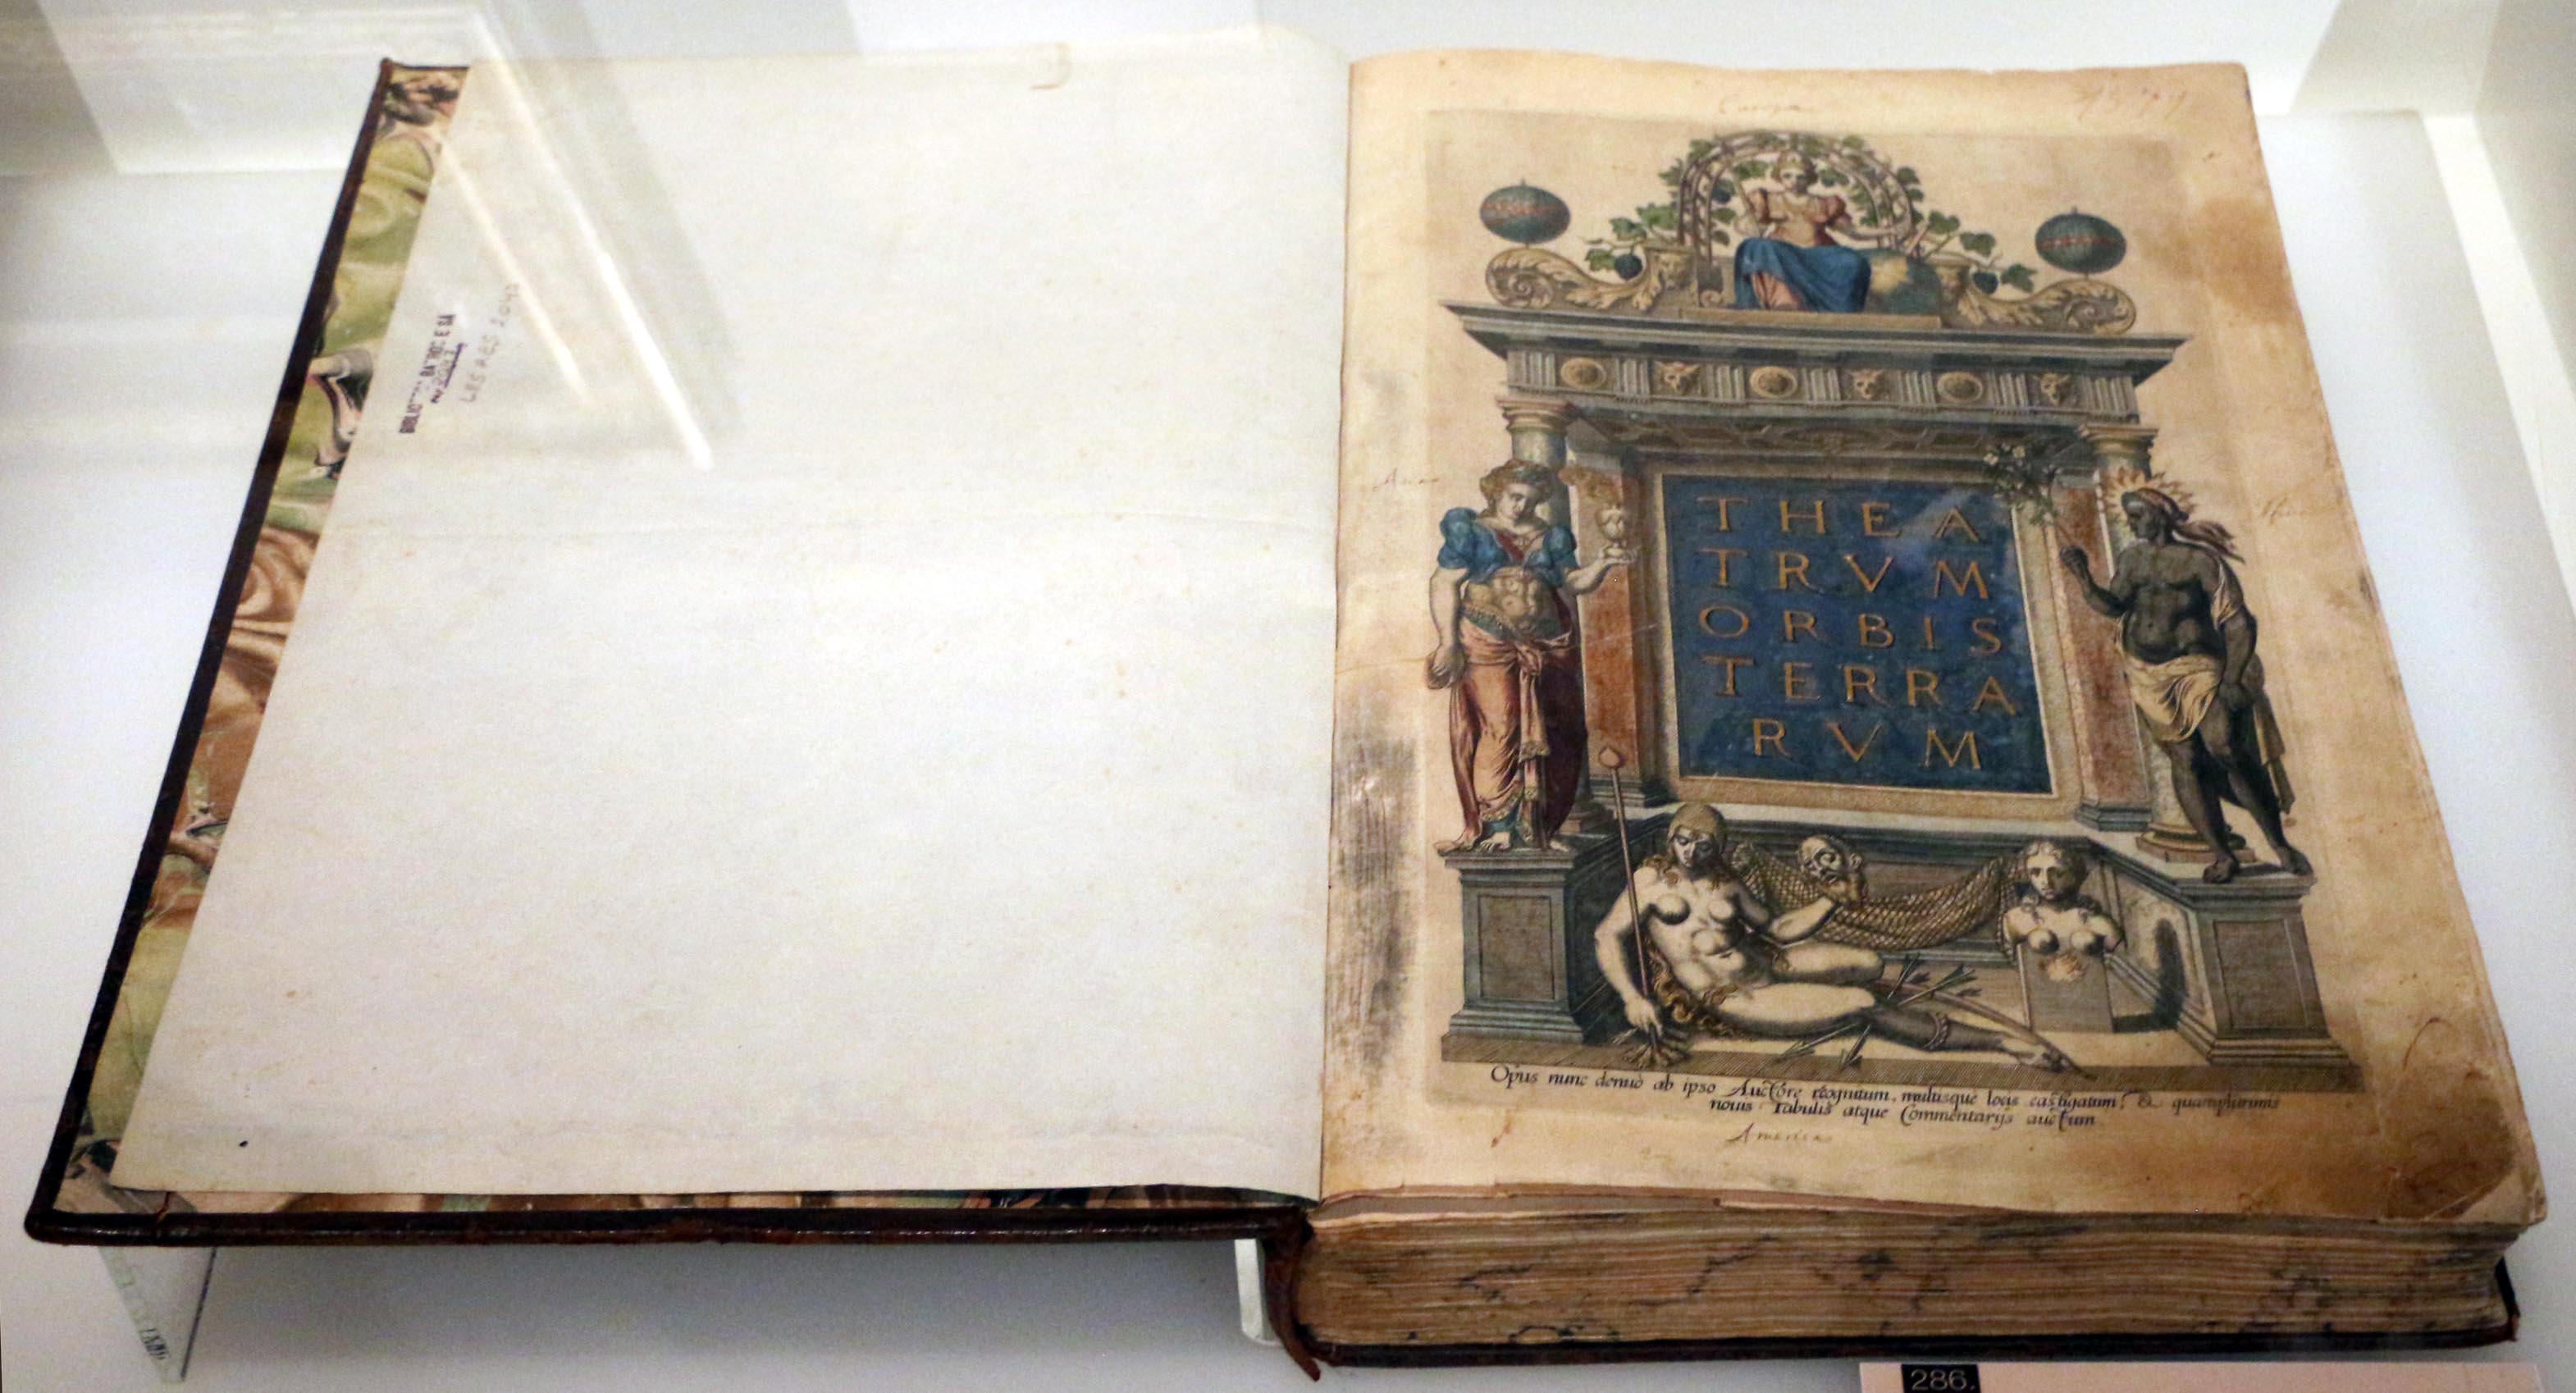 LES RES 2040
Europa
THEA
TRVM
ORBIS
TERRA
RVM
Asia
Opus nunc denuò ab ipso Auctore recognitum, multisque locis castigatum, & quamplurimis
nouis Tabulis atque Commentarijs auctum
America
286.